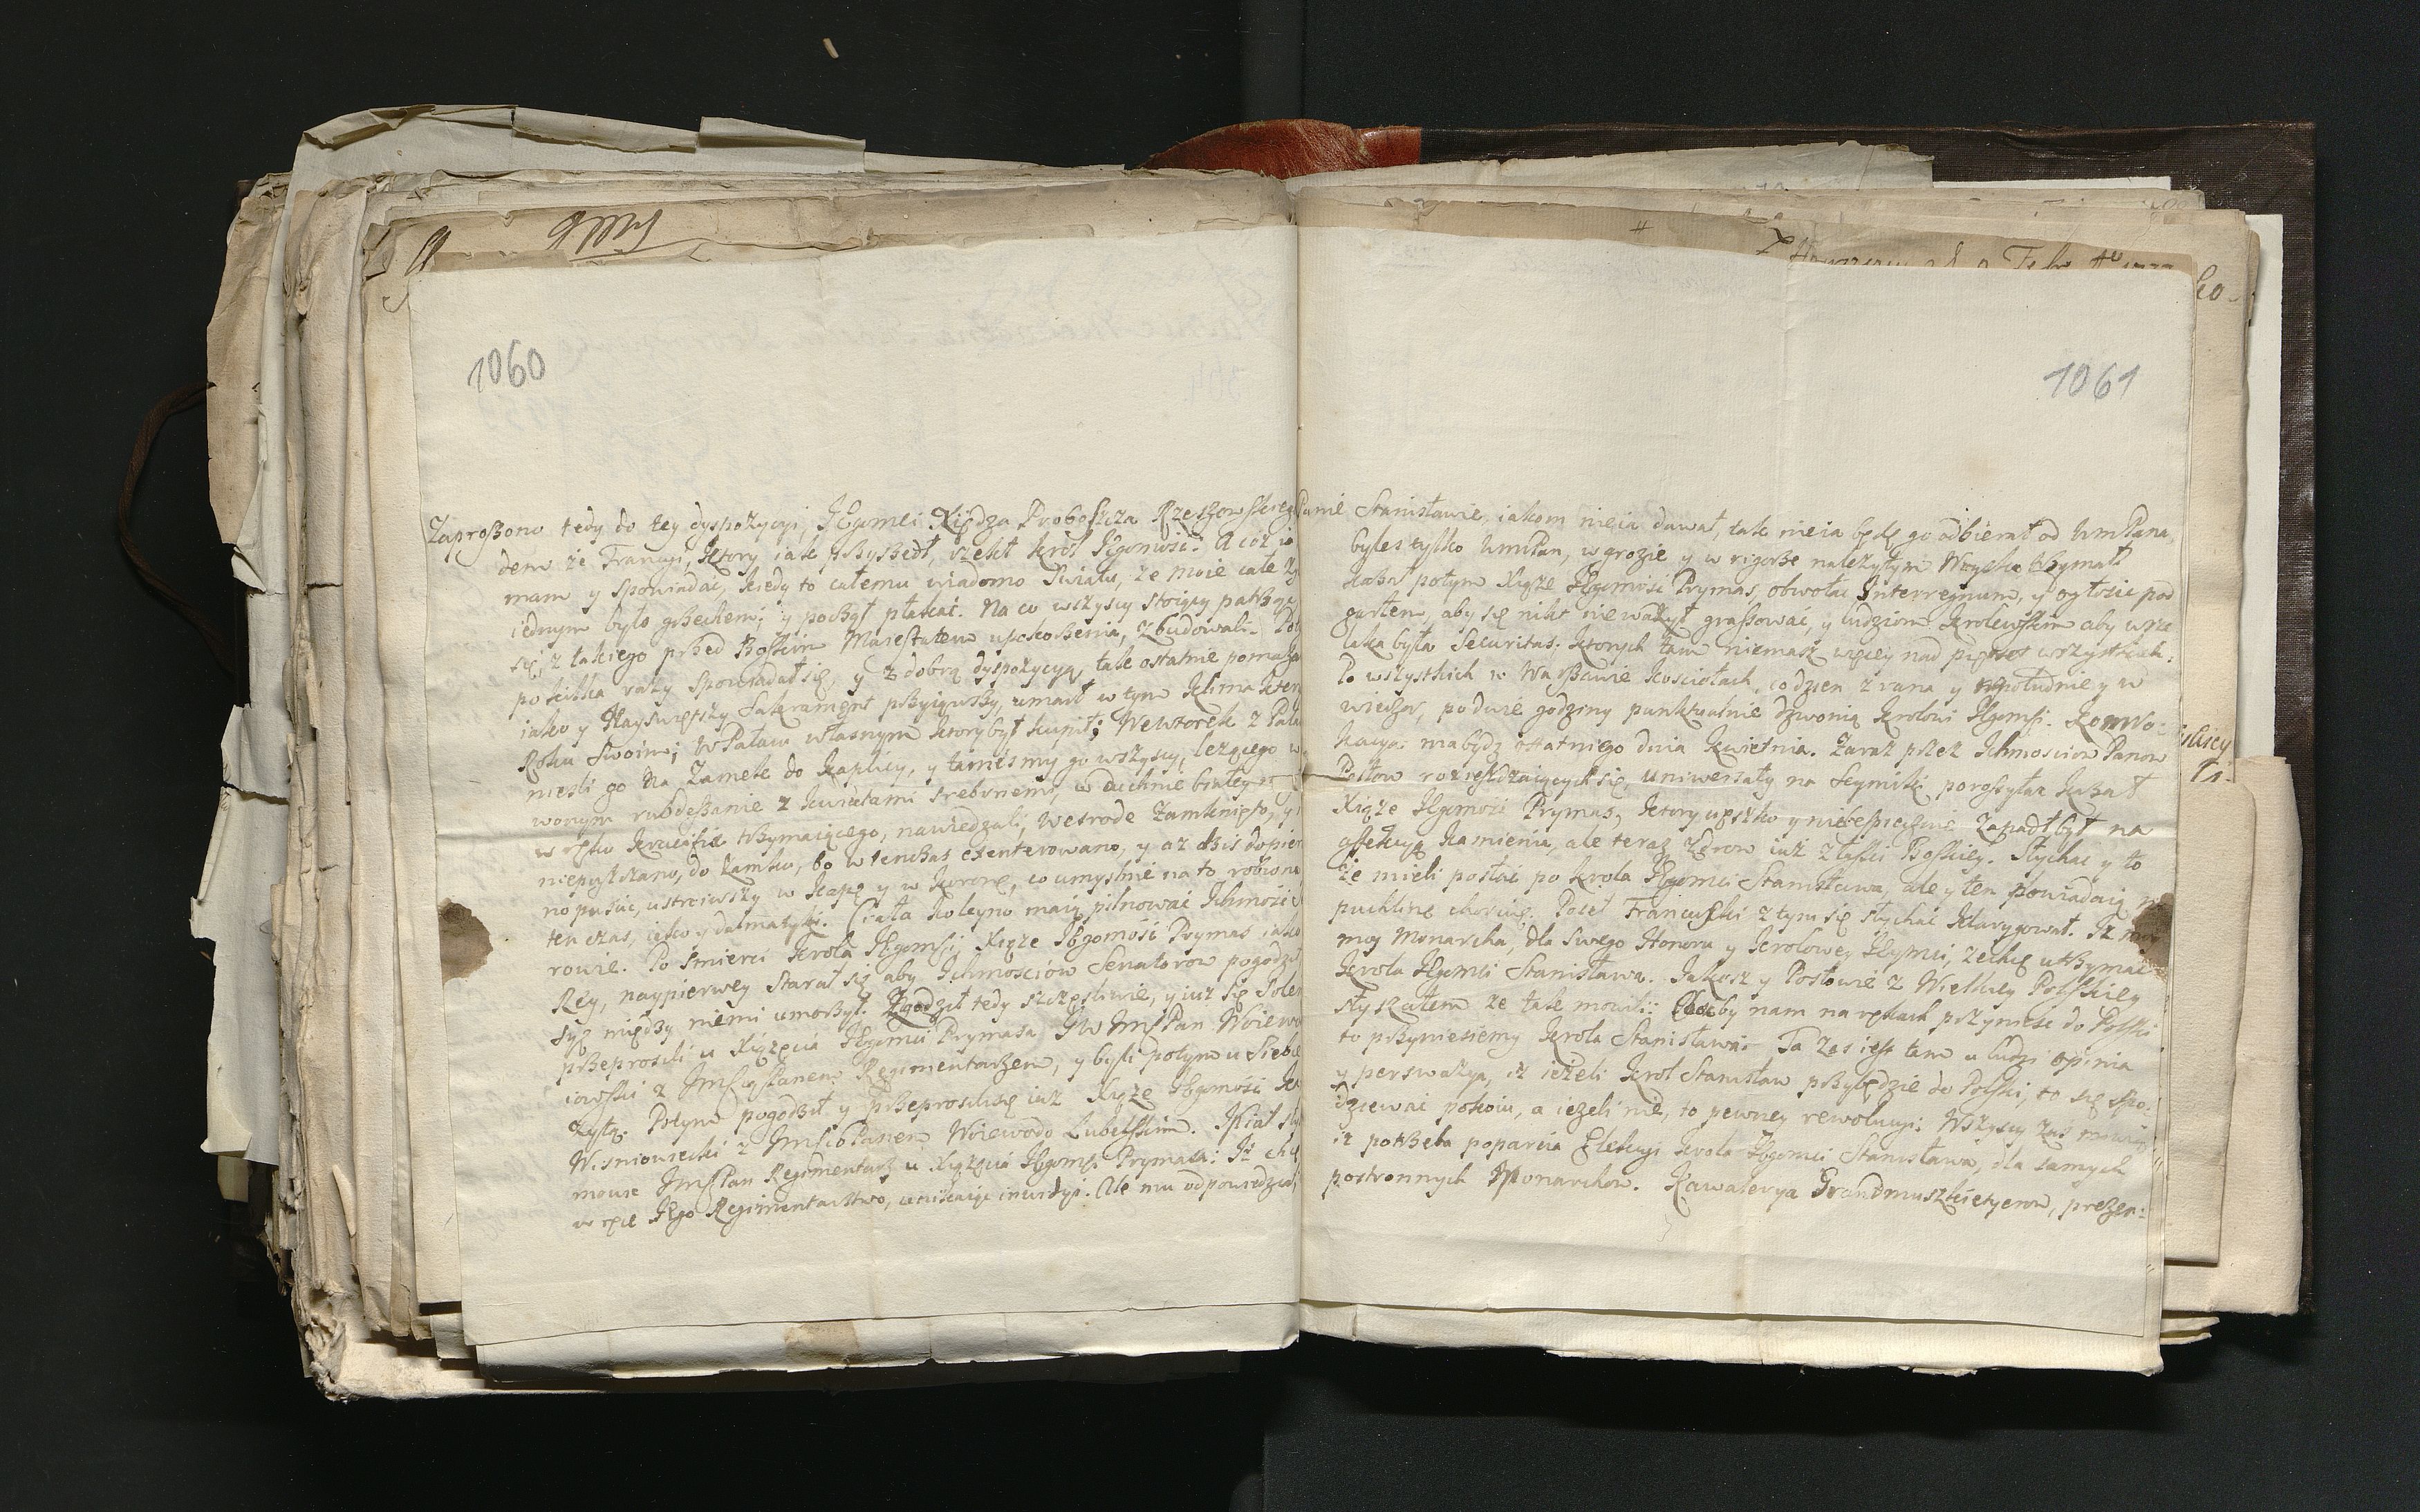 1060
Zaproszono tedy do tey dyspozycyi, JEgomci Xiędza Proboszcza Rzeszowskieg
dem że Francyi, ktory iak przyszedł, rzekł krol JEgomość: A coż ia
mam y spowiadać, kiedy to całemu wiadomo światu, że moie całe Zy
iednym było grzechem; y począł płakać. Na co wszyscy stoiący patrząc
się, z takiego przed Boskim Maiestatem upokorzenia, zbudowali. Pot
po kilka razy spowiadał się, y z dobrą dyspozycyą, tak ostatnie pomaza
iako y Nayswiętszy Sakrament przyiąwszy, umarł w tym klimakter
Roku swoim; w Pałacu własnym ktory był kupił; Wewtorek z Pała
niesli go na Zamek do kaplicy, y tamesmy go wszyscy, leżącego w
wonym rubdeszanie z kwiatami srebrnemi, w duchnie białey
w ręku krucifix trzymaiącego, nawiedzali, Wesrode zamknięto, y
niepuszczano, do zamku, bo w tenczas exenterowano, y aż dzis dopier
no pusić, ustroiwszy w kapę y w koronę, co umyslnie na to robiono
ten czas, iako y dalmatyki. Ciała koleyno maią pilnować Ichmość
rowie. Po śmierci krola JEgomsci, Xiąże JEgomość Prymas iako
Rey, naypierwey starał się aby Ichmosciow Senatorow pogodzi
syę między niemi umorzył. Zgodził tedy szczęsliwie, y iuż się Solen
przeprosili u Xiążęcia JEgomci Prymasa JW ImsPan Woiewo
iowski z Imscią Panem Regimentarzem, y byli potym u Siebie
zytą. Potym pogodził y przeprosili się iuż Xiąże JEgomość
Wisniowiecki z Imscią Panem Woiewodą Lubelskim. Chciał
mowić ImsPan Regimentarz u Xiążęcia JEgomsci Prymasa: Iż chcę
w ręce JEgo Regimentarstwo, unikaiąc inwidyi. Ale mu odpowiedział
1061
Panie Stanisławie, iakom nieia dawał, tak nieia będę go odbierał od UmPana
byles tylko UmPan, w grozie y w rigorze należytym Woysko trzymał
kazał potym Xiąże JEgomość Prymas, obwołać Interregnum, y ogłosić pod
garłem, aby się nikt nieważył grassować, y ludziom krolewskim aby wsze
laka była Securitas; ktorych tam niemasz więcey nad pięset wszystkich.
Po wszystkich w Warszawie kosciołach, co dzien z rana y w południe y w
wieczor, po dwie godziny punktualnie dzwonią krolowi JEgomsci. Konwo-
kacya: ma bydz ostatniego dnia kwietnia. Zaraz przez Ichmosciow Panow
Posłow rozieżdzaiących się, uniwersały na seymiki porozsyłać kazał
Xiąże JEgomość Prymas, ktory cięszko y niebespiecznie zapadł był na
affekcyą kamienia, ale teraz zdrow iuż z łaski Boskiey. Słychac y to
że mieli posłać po krola JEgomci Stanisława, ale y ten powiadaią
puchlinę choruie. Poseł Francuski z tym się słychac klarygował. Iż
moy Monarcha, dla swego Honoru y krolowey JEymci, zechce utrzymać
krola JEgomci Stanisława. Jakosz y Posłowie z Wielkiey Polskiey
słyszałem że tak mowili: Choćby nam na rękach przynieść do Polski
to przyniesiemy krola Stanisława. Ta zas iest tam u ludzi opinia
y perswazya, iż ieżeli krol Stanisław przybędzie do Polski, to się spo-
dziewać pokoiu, a ieżeli nie, to pewney rewolucyi: Wszyscy zas mowią
iż potrzeba poparcia Elekcyi krola JEgomci Stanisława, dla samych
postronnych Monarchow. Kawalerya Grandmuszkietyerow, prezen-